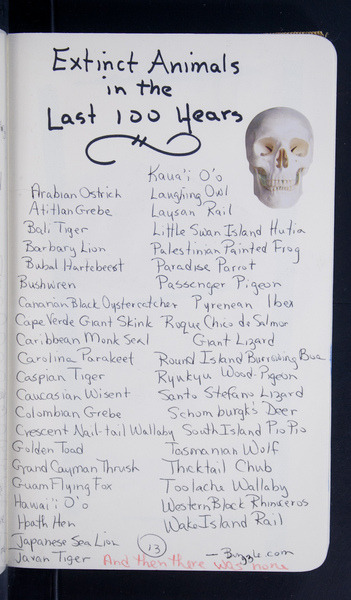 Extinct Animals
in the
Last 100 Years
Arabian Ostrich
Atitlan Grebe
Bali Tiger
Barbary Lion
Bubal Hartebeest
Bushwren
Canarian Black Oystercatcher
Cape Verde Giant Skink
Caribbean Monk Seal
Carolina Parakeet
Caspian Tiger
Caucasian Wisent
Colombian Grebe
Crescent Nail-tail Wallaby
Golden Toad
Grand Cayman Thrush
Guam Flying Fox
Hawai'i O'o
Heath Hen
Japanese Sea Lion
Javan Tiger
Kaua'i O'o
Laughing Owl
Laysan Rail
Little Swan Island Hutia
Palestinian Painted Frog
Paradise Parrot
Passenger Pigeon
Pyrenean Ibex
Roque Chico de Salmor
Giant Lizard
Round Island Burrowing Boa
Ryukyu Wood-Pigeon
Santo Stefano Lizard
Schomburgk's Deer
South Island Piopio
Tasmanian Wolf
Thicktail Chub
Toolache Wallaby
Western Black Rhinoceros
Wake Island Rail
13
— Buzzle.com
And then there was none